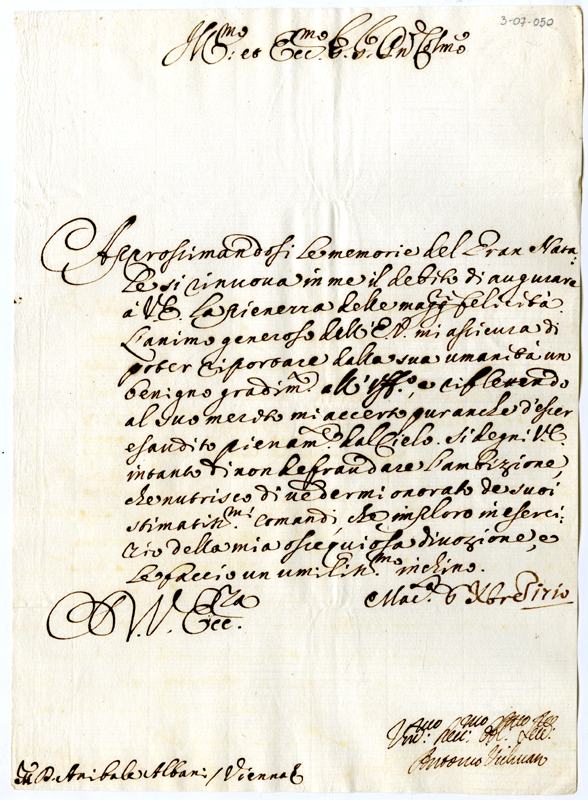 3-07-050
Ill.mo et Ecc.mo S.r S.r P'ron Col.mo
Approssimandosi le memorie del Gran Nata-
le si rinuova in me il debito di augurare
à V.E. la pienezza delle magg.i felicità.
L'animo generoso dell'E.V. mi asicura di
poter riportare dalla sua umanità un
benigno gradim.to all'uff.o, e riflettendo
al suo merito mi accerto pur anche d'esser
esaudito pienam.te dal Cielo. Si degni V.E.
intanto di non defraudare l'ambizione,
che nutrisco di vedermi onorato de suoi
stimatiss.mi comandi, che imploro in eserci-
zio della mia ossequiosa divozione, e
le faccio un umiliss.mo inchino.
Mac.a 6 Xbre 1710
D. V. Ecc.za
Antonio
D. Anibale Albani / Vienna